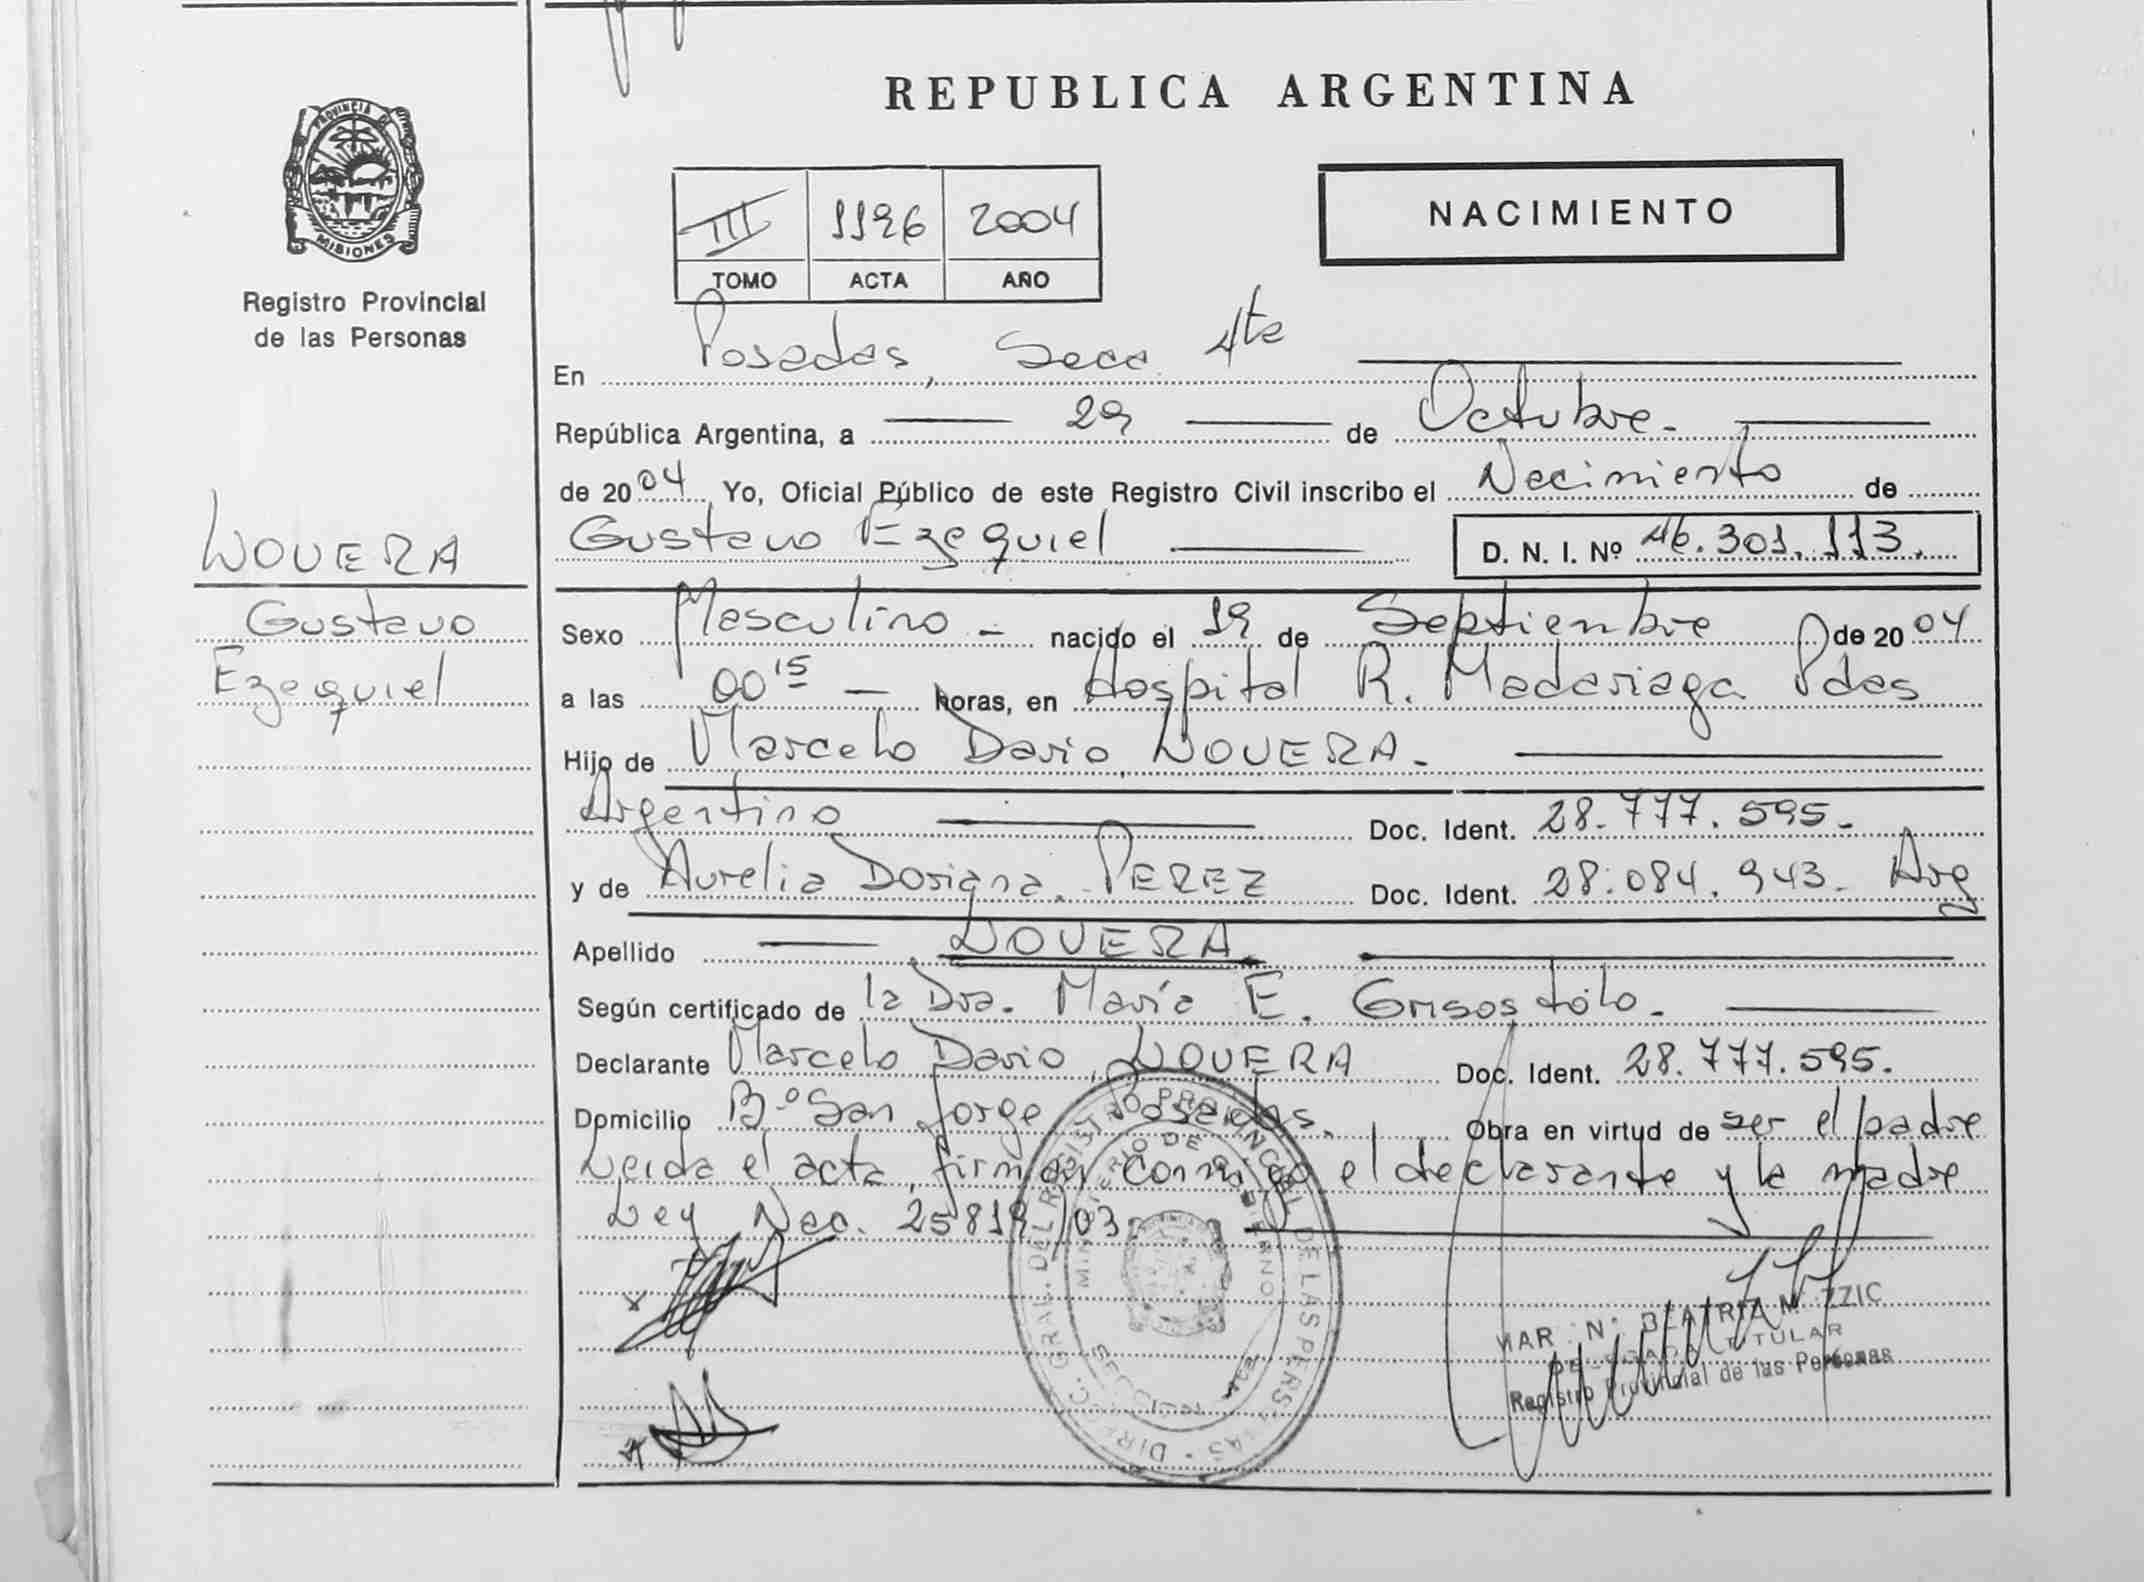 REPUBLICA ARGENTINA
PROVINCIA DE
MISIONES
Registro Provincial
de las Personas
III 1196 2004
TOMO ACTA AÑO
NACIMIENTO
En Posadas, Secc. 4ta
República Argentina, a 29 de Octubre.
de 2004 Yo, Oficial Público de este Registro Civil inscribo el Nacimiento de
Gustavo Ezequiel D. N. I. Nº 46.301.113.
LOVERA
Gustavo
Ezequiel
Sexo Masculino - nacido el 19 de Septiembre de 2004
a las 00 15 - horas, en Hospital R. Madariaga Pdas
Hijo de Marcelo Dario LOVERA.
Argentino Doc. Ident. 28.777.595.
y de Aurelia Doriana PEREZ Doc. Ident. 28.084.943. Arg
Apellido LOVERA
Según certificado de la Dra. María E. Grisostólo.
Declarante Marcelo Dario LOVERA Doc. Ident. 28.777.595.
Domicilio Bº San Jorge Posadas. Obra en virtud de ser el padre
Leida el acta, firman conmigo el declarante y la madre
Ley Nac. 25819/03
DIREC. GRAL. DEL REGISTRO PROVINCIAL DE LAS PERSONAS
MINISTERIO DE GOBIERNO
BEATRIZ
DELEGADA TITULAR
Registro Provincial de las Personas